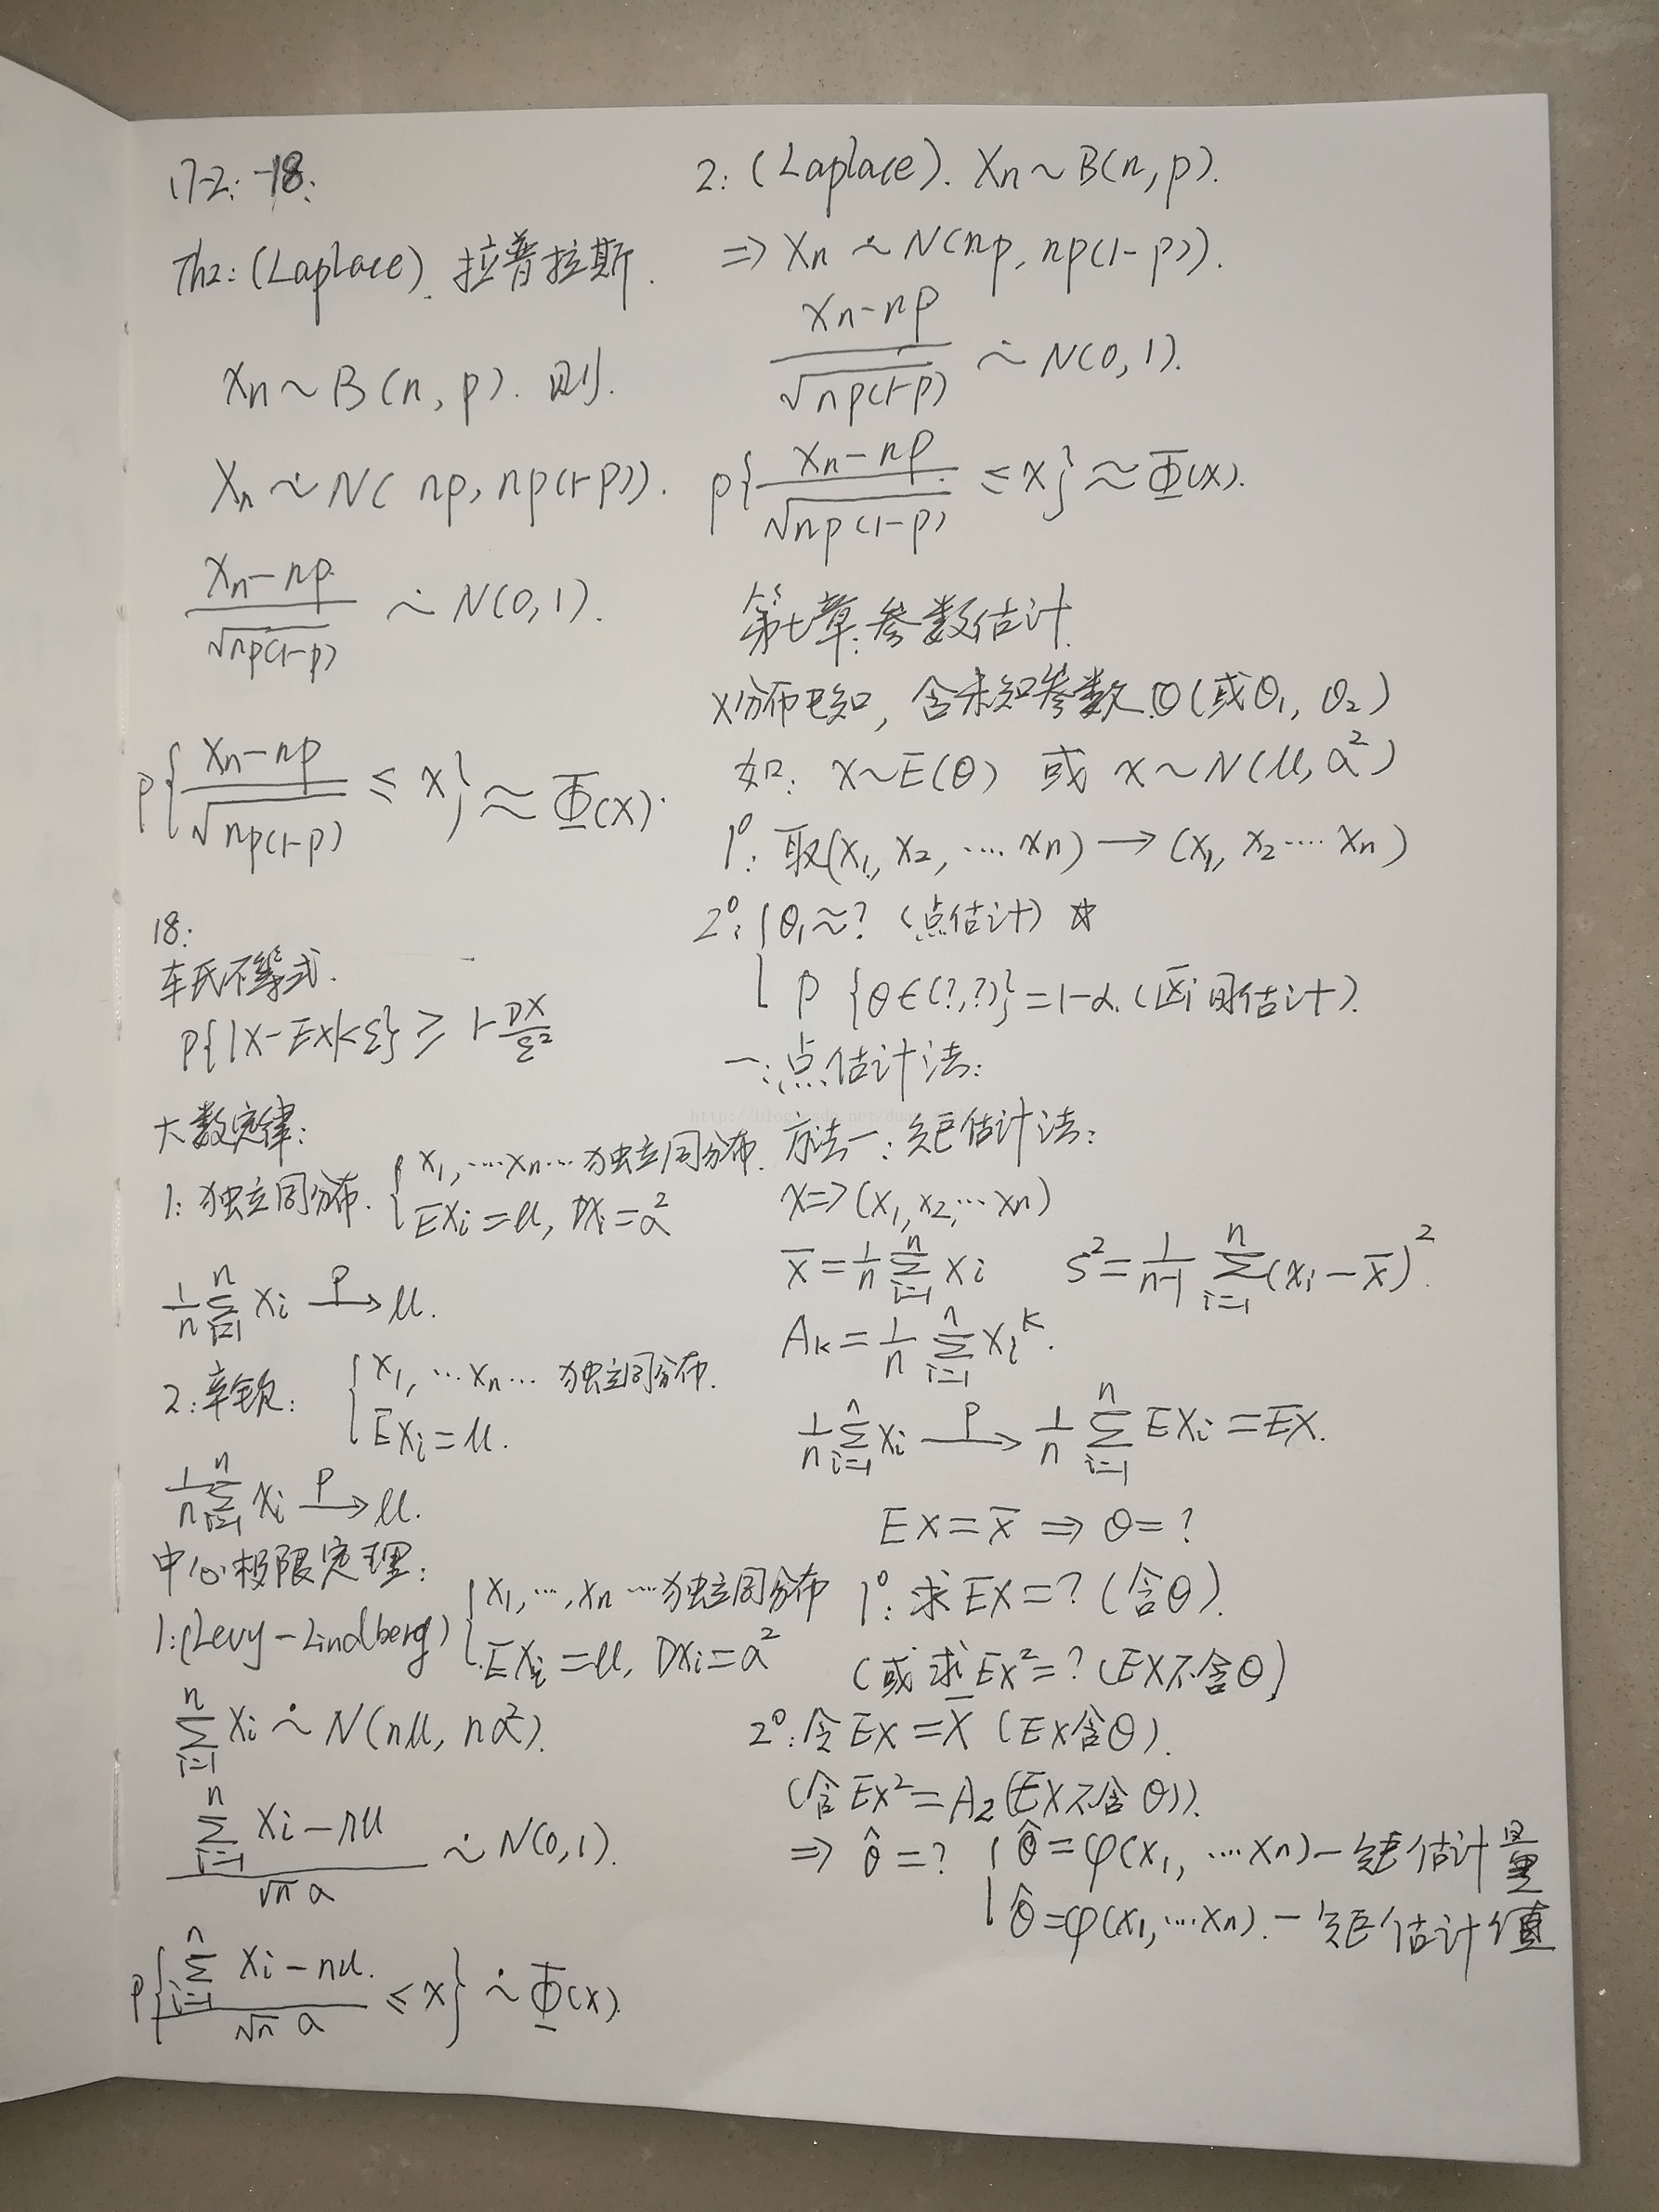 17-2: -18:
Th2: (Laplace). 拉普拉斯.
Xn ~ B(n, p). 则.
Xn ~̇ N( np, np(1-p)).
(Xn-np)/√(np(1-p)) ~̇ N(0,1).
P{(Xn-np)/√(np(1-p)) ≤ x} ≈ Φ(x).
18:
车氏不等式.
P{|X-EX|<ε} ≥ 1-DX/ε²
大数定律:
1: 独立同分布. { X1, ⋯Xn⋯ 独立同分布.
EXi=μ, DXi=a²
1/n ∑_{i=1}^{n} Xi —P→ μ.
2: 辛钦: { X1, ⋯Xn⋯ 独立同分布.
EXi=μ.
1/n ∑_{i=1}^{n} Xi —P→ μ.
中心极限定理:
1: (Levy-Lindberg) { X1, ⋯, Xn ⋯独立同分布
EXi=μ, DXi=a²
∑_{i=1}^{n} Xi ~̇ N(nμ, na²).
(∑_{i=1}^{n} Xi-nμ)/(√n a) ~̇ N(0,1).
P{(∑_{i=1}^{n} Xi-nμ)/(√n a) ≤ x} ~̇ Φ(x).
2: (Laplace). Xn ~ B(n, p).
⇒ Xn ~̇ N(np, np(1-p)).
(Xn-np)/√(np(1-p)) ~̇ N(0,1).
P{(Xn-np)/√(np(1-p)) ≤ x} ≈ Φ(x).
第七章: 参数估计.
X分布已知, 含未知参数θ(或θ1, θ2)
如: X~E(θ) 或 X~N(μ, a²)
1°: 取(X1, X2, ⋯⋯ Xn) → (x1, x2 ⋯⋯ xn)
2°: { θ1≈? (点估计) ☆
P {θ∈(?,?)}=1-α. (区间估计).
一: 点估计法:
方法一: 矩估计法:
X⇒(X1, X2, ⋯ Xn)
X̄=1/n ∑_{i=1}^{n} Xi S²=1/(n-1) ∑_{i=1}^{n}(Xi-X̄)².
Ak=1/n ∑_{i=1}^{n} Xi^k.
1/n ∑_{i=1}^{n} Xi —P→ 1/n ∑_{i=1}^{n} EXi=EX.
EX=X̄ ⇒ θ=?
1°: 求EX=? (含θ).
(或求EX²=? (EX不含θ)
2°: 令EX=X̄ (EX含θ).
(含EX²=A2(EX不含θ)).
⇒ θ̂=? { θ̂=φ(X1, ⋯Xn)-矩估计量
θ̂=φ(x1, ⋯xn).-矩估计值